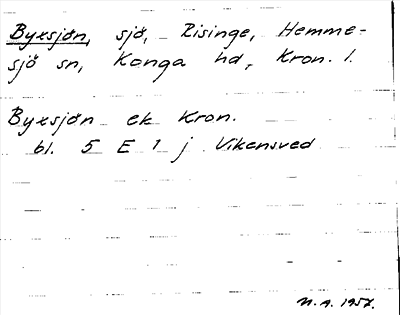 Byxsjön, sjö, Risinge, Hemme-
sjö sn, Konga hd, Kron. l.
Byxsjön ek Kron.
bl. 5 E 1 j Vikensved
N.A. 1957.